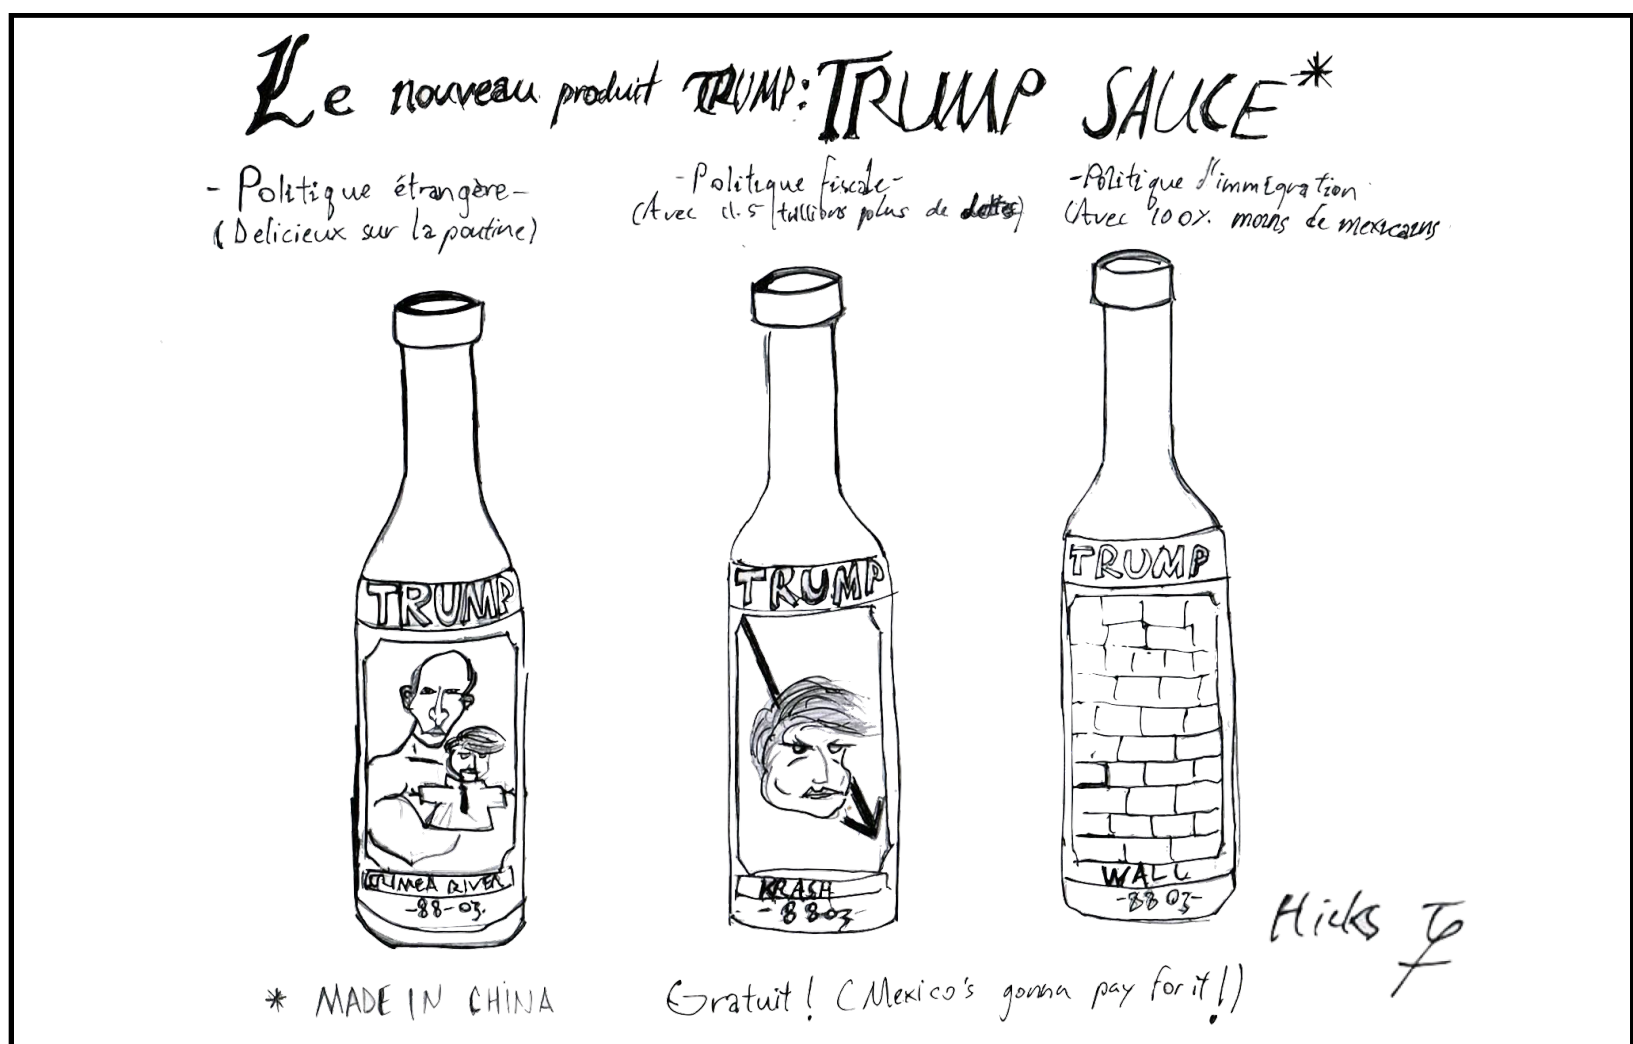 Le nouveau produit TRUMP: TRUMP SAUCE*
- Politique étrangère -
(Delicieux sur la poutine)
- Politique fiscale -
(Avec 11.5 trillions plus de dettes)
- Politique d'immigration
(Avec 100% moins de mexicains
TRUMP
CRIMEA RIVER
-88-oz.
TRUMP
KRASH
- 88oz-
TRUMP
WALL
-88 oz-
Hicks
* MADE IN CHINA
Gratuit! (Mexico's gonna pay for it!)